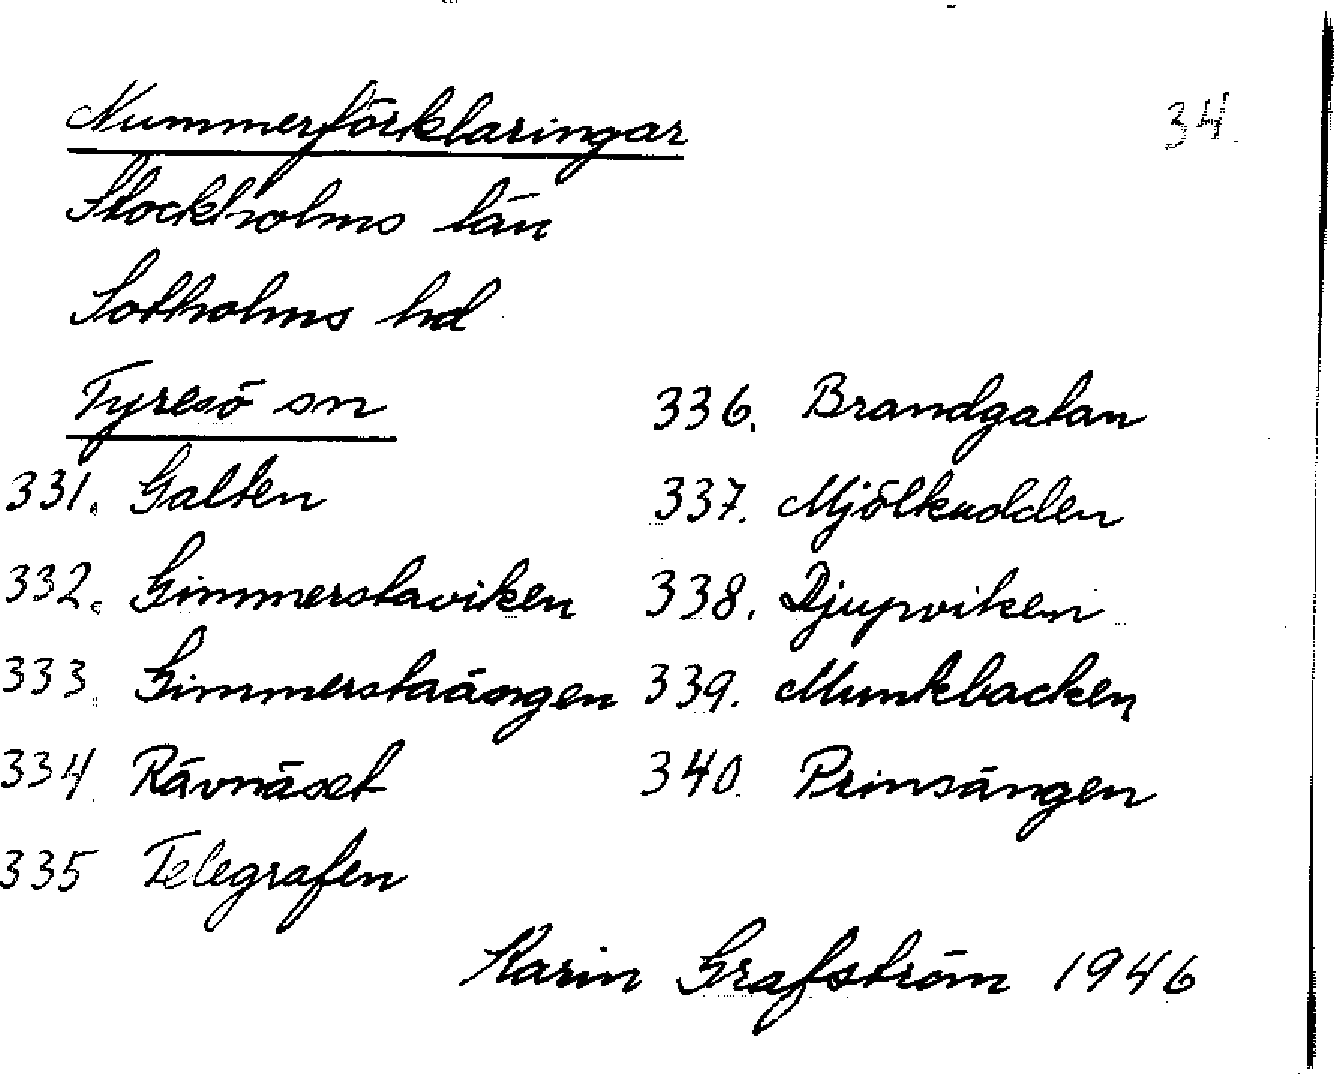 Nummerförklaringar 34
Stockholms län
Sotholms hd
Tyresö sn
331. Galten
332. Gimmerstaviken
333. Gimmerstaängen
334 Rävnäset
335 Telegrafen
336. Brandgatan
337. Mjölkudden
338. Djupviken
339. Munkbacken
340. Prinsängen
Karin Grafström 1946